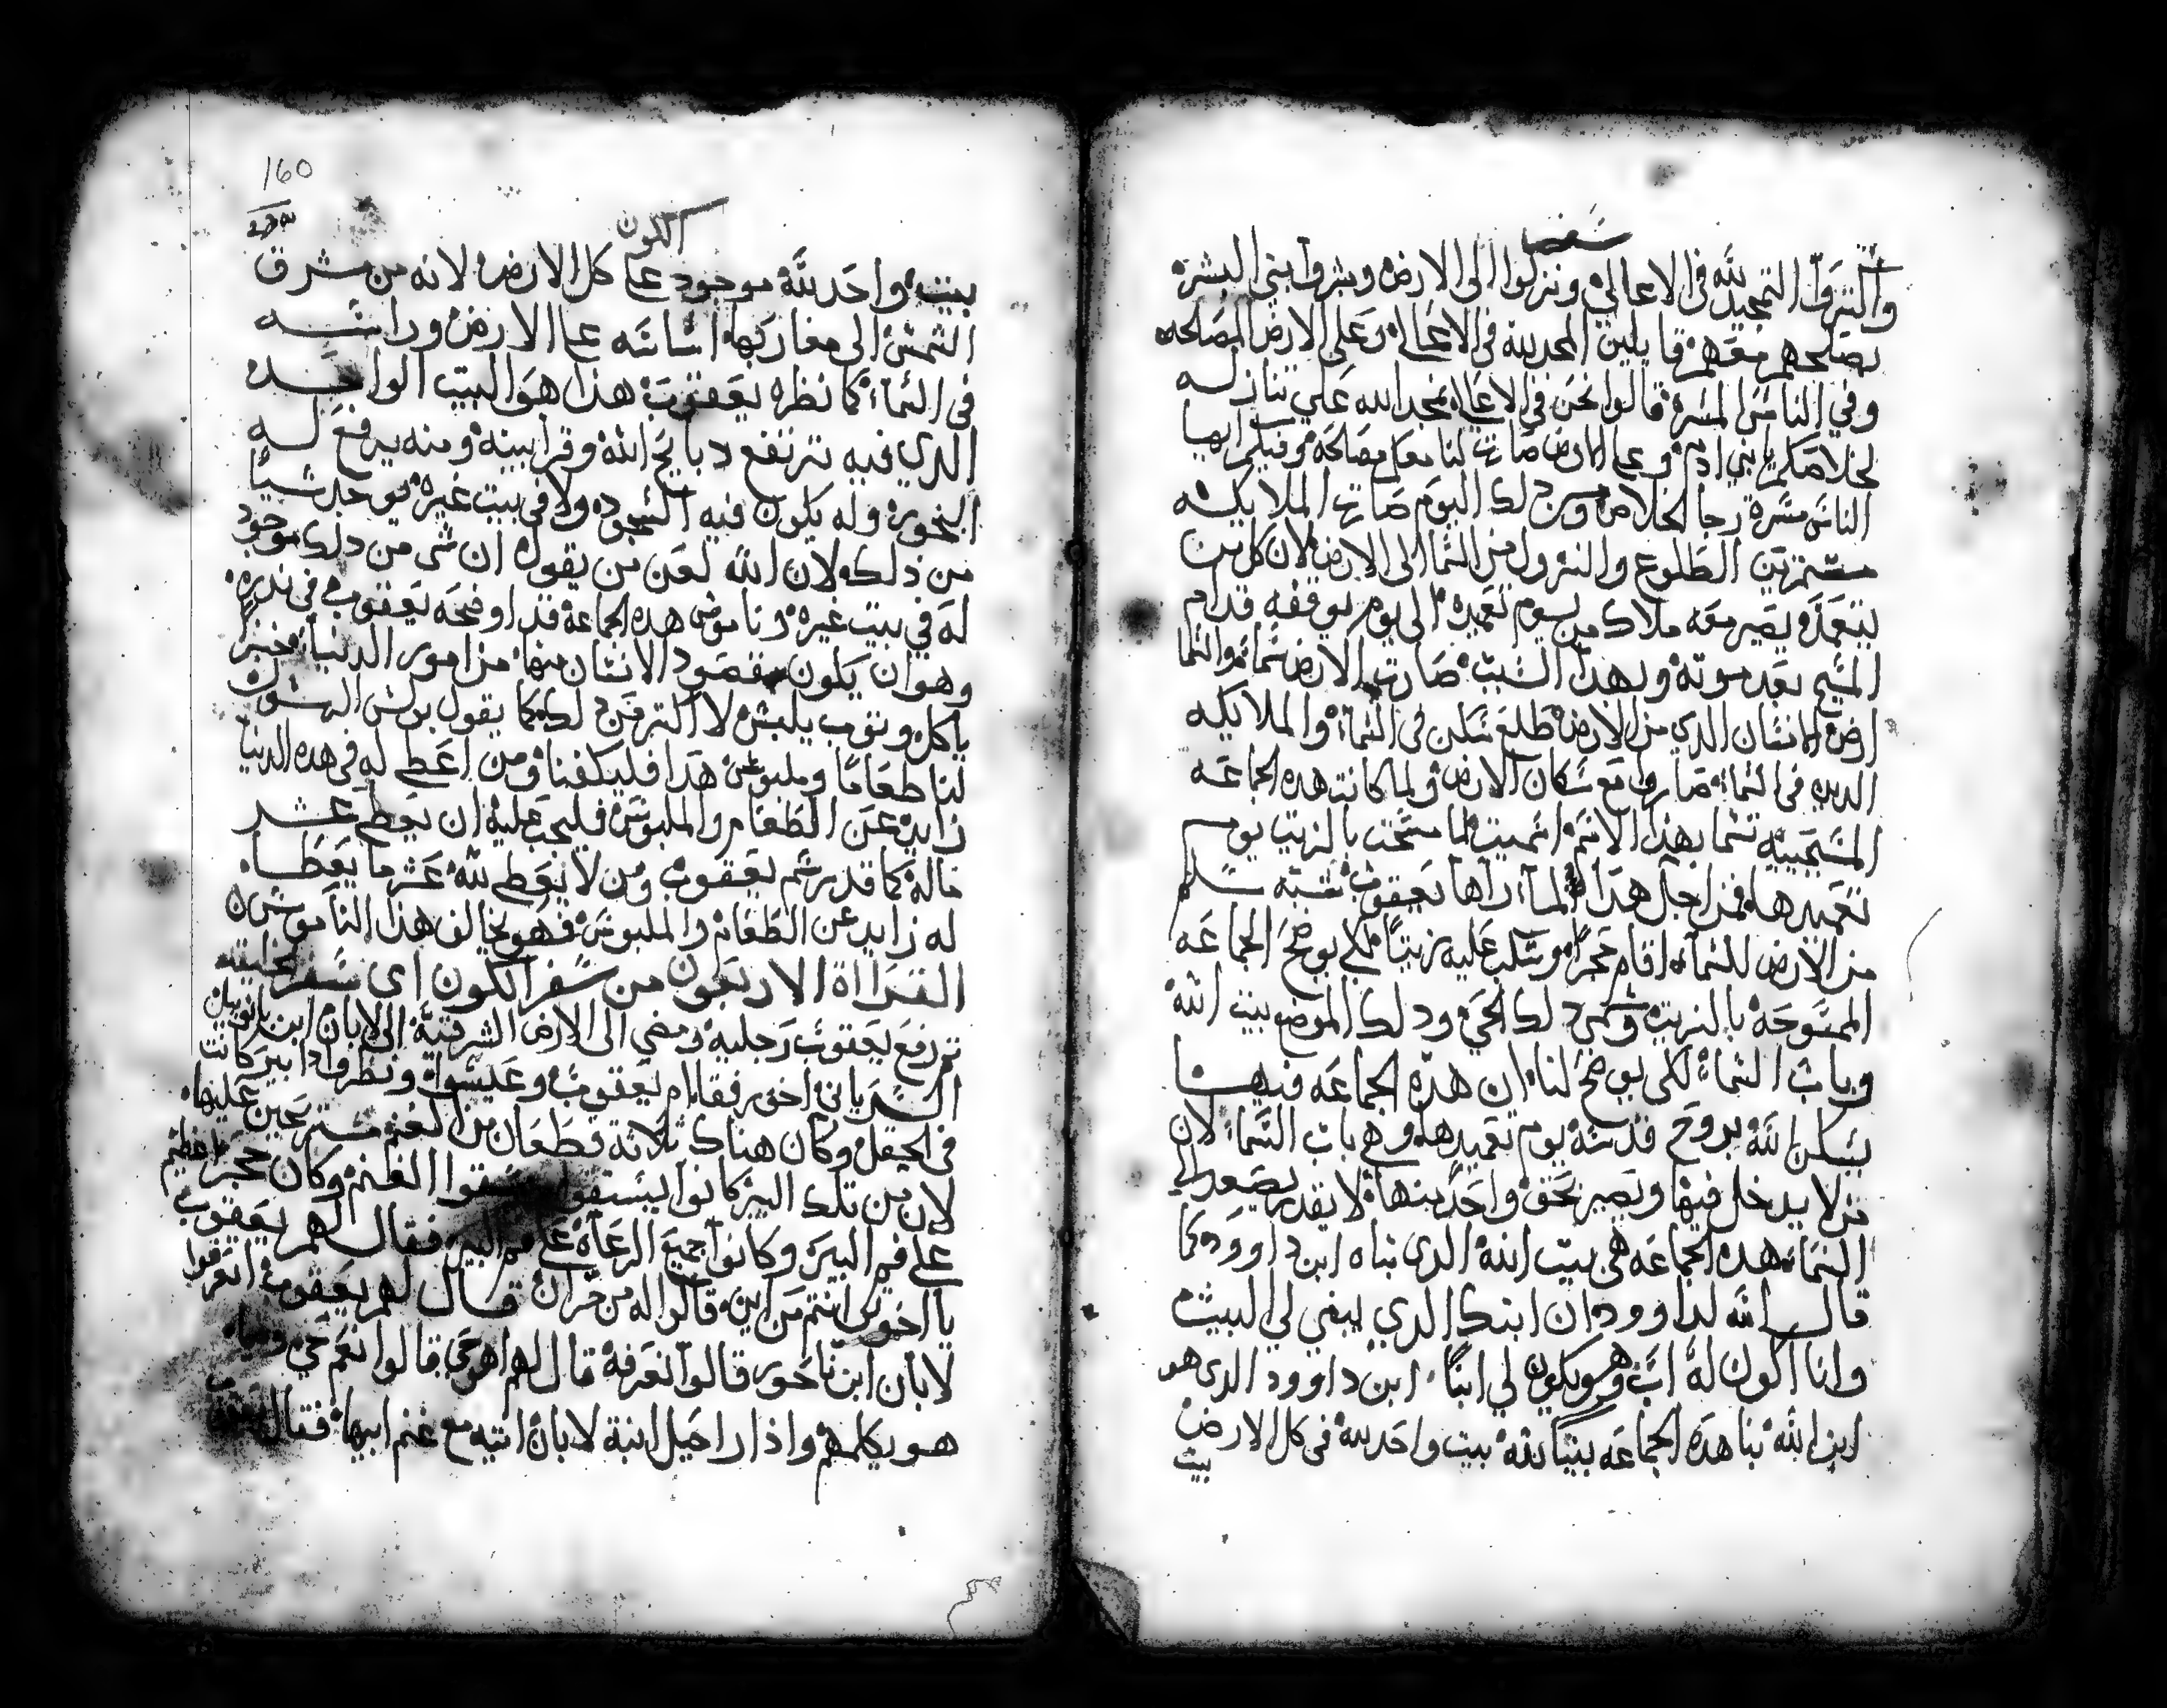 سفر
والتزوا التمجيد لله فى الاعالي ونزلوا الى الارض وبشروا بني البشره
بصلحهم معهم قايلين المجد لله فى الاعالى وعلى الارض المصالحه
وفي الناس المسره قالوا نحن فى الاعالا نمجد الله علي تنازله
لخلاصكم يا بني ادم وعلى الارض صارت لنا معكم مصالحه وفيكم ايها
الناس مسرة رجا الخلاص ومن دلك اليوم صارت الملايكه
مستمرين الطلوع والنزول من السما الى الارض لان كل من
يتعمد يصير معه ملاك من يوم تعميده الى يوم يوقفه قدام
المسيح بعد موته وبهذا السبب صارت الارض سما والسما
ارض الانسان الدي من الارض طلع سكن فى السماء والملايكه
الدين فى السماء صاروا مع سكان الارض ولما كانت هده الجماعه
المسيحييه تسما بهذا الاسم اسميت لما مسحت بالزيت يوم
تعميدها فمن اجل هدا لما راها يعقوب نفسه سلم
من الارض للسماء اقام حجرا وسكب عليه زيتا لكى يوضح الجماعه
الممسوحه بالزيت وسمى دلك الحجر ودلك الموضع بيت الله
وباب السماء لكى يوضح لنا ان هذه الجماعه فيها
يسكن الله بروح قدسه يوم تعميدها وهى باب السماء لان
من لا يدخل فيها ويصير بحق واحد منها لا يقدر يصعد الى
السماء هده الجماعه هى بيت الله الدى بناه ابن داوود كما
قال الله لداوود ان ابنك الدي يبني لي البيت
وانا اكون له اب وهو يكون لي ابنا ابن داوود الدى هو
ابن الله بنا هده الجماعه بيتا لله بيت واحد لله فى كل الارض
بيت
160
الكون
بيت واحد لله موجود على كل الارض لانه من مشرق
الشمس الى مغاربها اساسه على الارض وراسه
فى السماء كما نظره يعقوب هذا هو البيت الواحده
الدي فيه ترتفع دبايح الله وقرابينه ومنه يرفع له
البخور وله يكون فيه السجود ولا فى بيت غيره يوجد شيا
من ذلك لان الله لعن من يقول ان شى من دلك موجود
له في بيت غيره وناموس هده الجماعة قد اوضحه يعقوب فى ندره
وهو ان يكون مقصود الانسان منها من امور الدنيا خبز
ياكل وتوب يلبس لا اكتر من دلك كما يقول بولس الرسول
لنا طعاما وملبوس هدا فليكفنا ومن اعطى له فى هده الدنيا
زايد عن الطعام والملبوس فليجب عليه ان يعطى عشر
ماله كما قد رسم يعقوب ومن لا يعطى لله عشر ما يعطاه
له زايد عن الطعام والملبوس فهو يخالف هذا الناموس
القرااة الاربعون من سفر الكون اى سفر الخليقه
تم رفع يعقوب رجليه ومضى الى الارض الشرقية الى لابان ابن باتوييل
السريانى اخو رفقا ام يعقوب وعيسوا ونظر واذا بير كانت
فى الحقل وكان هناك تلاتة قطعان من الغنم مستريحين عليها
لان من تلك البير كانوا يستقوا ويسقوا الغنم وكان حجرا عظيم
على فم البير وكانوا جميع الرعاة على فم البير فقال لهم يعقوب
يا اخوتى انتم من اين قالوا له من حران قال لهم يعقوب اتعرفوا
لابان ابن ناحور قالوا نعرفه قال لهم اهو حي قالوا نعم حي
هو يكلمهم واذا راحيل ابنة لابان اتيه مع غنم ابيها فقال